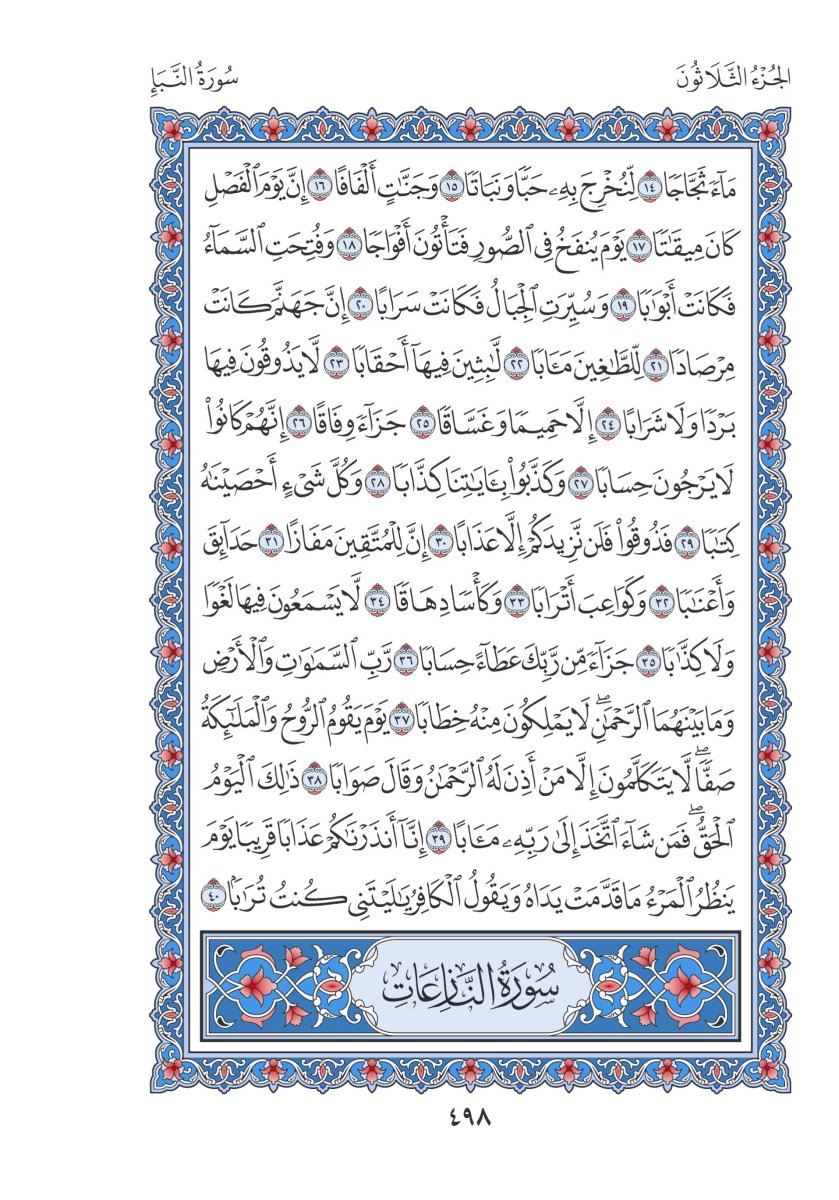 الجُزْءُ الثَّلَاثُونَ
سُورَةُ النَّبَإِ
مَآءٗ ثَجَّاجٗا ١٤ لِّنُخۡرِجَ بِهِۦ حَبّٗا وَنَبَاتٗا ١٥ وَجَنَّٰتٍ أَلۡفَافًا ١٦ إِنَّ يَوۡمَ ٱلۡفَصۡلِ
كَانَ مِيقَٰتٗا ١٧ يَوۡمَ يُنفَخُ فِي ٱلصُّورِ فَتَأۡتُونَ أَفۡوَاجٗا ١٨ وَفُتِحَتِ ٱلسَّمَآءُ
فَكَانَتۡ أَبۡوَٰبٗا ١٩ وَسُيِّرَتِ ٱلۡجِبَالُ فَكَانَتۡ سَرَابًا ٢٠ إِنَّ جَهَنَّمَ كَانَتۡ
مِرۡصَادٗا ٢١ لِّلطَّٰغِينَ مَـَٔابٗا ٢٢ لَّٰبِثِينَ فِيهَآ أَحۡقَابٗا ٢٣ لَّا يَذُوقُونَ فِيهَا
بَرۡدٗا وَلَا شَرَابًا ٢٤ إِلَّا حَمِيمٗا وَغَسَّاقٗا ٢٥ جَزَآءٗ وِفَاقًا ٢٦ إِنَّهُمۡ كَانُواْ
لَا يَرۡجُونَ حِسَابٗا ٢٧ وَكَذَّبُواْ بِـَٔايَٰتِنَا كِذَّابٗا ٢٨ وَكُلَّ شَيۡءٍ أَحۡصَيۡنَٰهُ
كِتَٰبٗا ٢٩ فَذُوقُواْ فَلَن نَّزِيدَكُمۡ إِلَّا عَذَابًا ٣٠ إِنَّ لِلۡمُتَّقِينَ مَفَازًا ٣١ حَدَآئِقَ
وَأَعۡنَٰبٗا ٣٢ وَكَوَاعِبَ أَتۡرَابٗا ٣٣ وَكَأۡسٗا دِهَاقٗا ٣٤ لَّا يَسۡمَعُونَ فِيهَا لَغۡوٗا
وَلَا كِذَّٰبٗا ٣٥ جَزَآءٗ مِّن رَّبِّكَ عَطَآءً حِسَابٗا ٣٦ رَّبِّ ٱلسَّمَٰوَٰتِ وَٱلۡأَرۡضِ
وَمَا بَيۡنَهُمَا ٱلرَّحۡمَٰنِۖ لَا يَمۡلِكُونَ مِنۡهُ خِطَابٗا ٣٧ يَوۡمَ يَقُومُ ٱلرُّوحُ وَٱلۡمَلَٰٓئِكَةُ
صَفّٗاۖ لَّا يَتَكَلَّمُونَ إِلَّا مَنۡ أَذِنَ لَهُ ٱلرَّحۡمَٰنُ وَقَالَ صَوَابٗا ٣٨ ذَٰلِكَ ٱلۡيَوۡمُ
ٱلۡحَقُّۖ فَمَن شَآءَ ٱتَّخَذَ إِلَىٰ رَبِّهِۦ مَـَٔابًا ٣٩ إِنَّآ أَنذَرۡنَٰكُمۡ عَذَابٗا قَرِيبٗا يَوۡمَ
يَنظُرُ ٱلۡمَرۡءُ مَا قَدَّمَتۡ يَدَاهُ وَيَقُولُ ٱلۡكَافِرُ يَٰلَيۡتَنِي كُنتُ تُرَٰبَۢا ٤٠
سُورَةُ النَّازِعَاتِ
٤٩٨